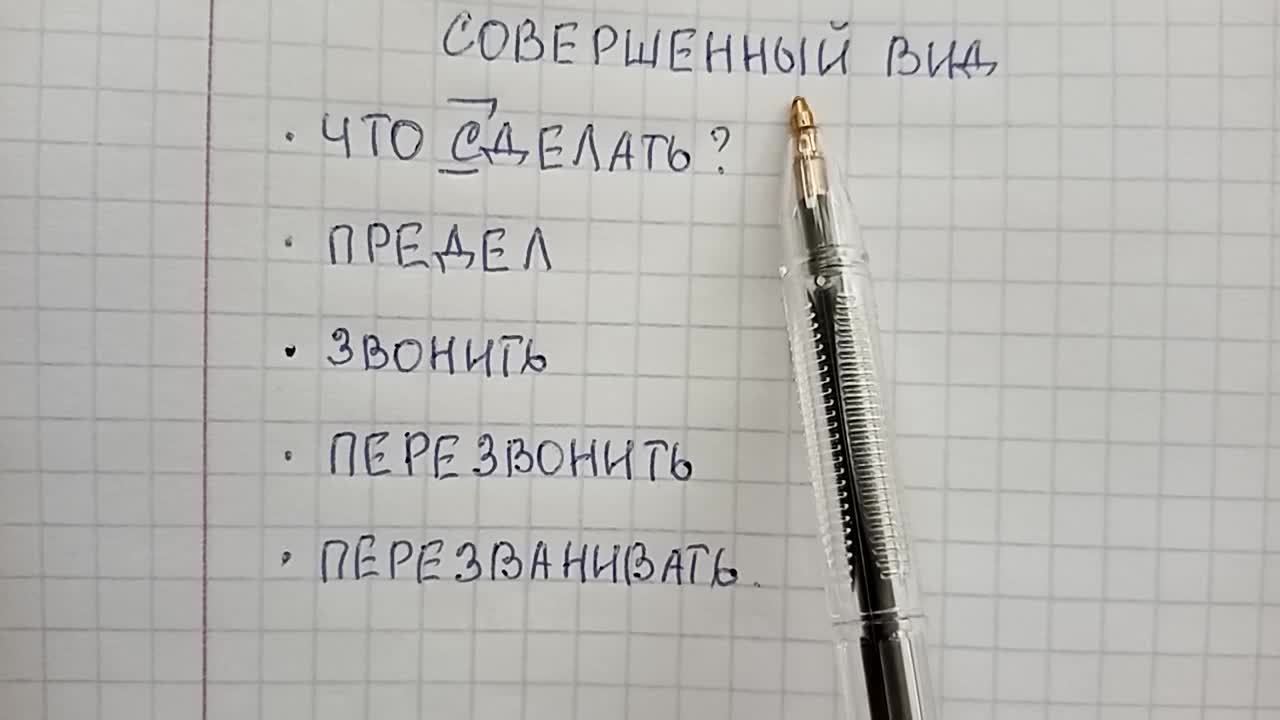 СОВЕРШЕННЫЙ ВИД
· ЧТО СДЕЛАТЬ?
· ПРЕДЕЛ
· ЗВОНИТЬ
· ПЕРЕЗВОНИТЬ
· ПЕРЕЗВАНИВАТЬ.